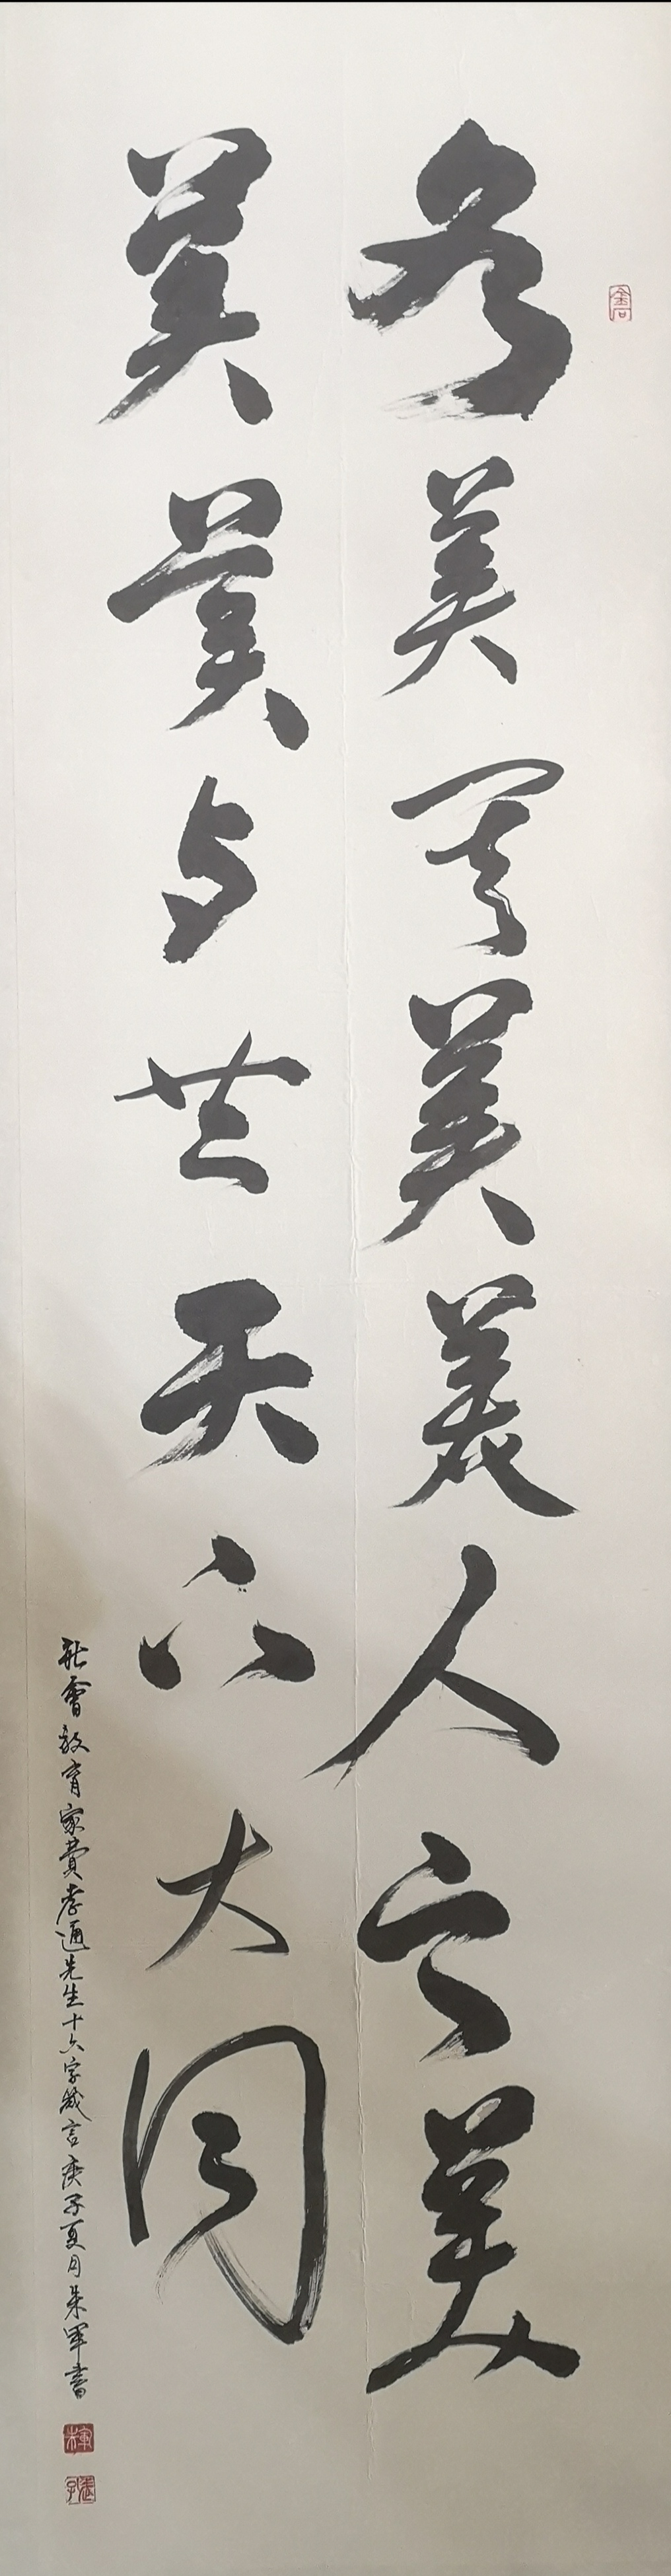 各美其美美人之美
美美与共天下大同
社會教育家費孝通先生十六字箴言庚子夏月朱軍書